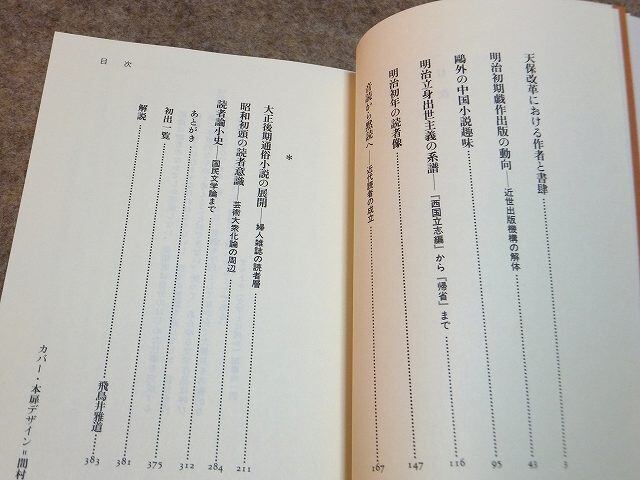 天保改革における作者と書肆 3
明治初期戯作出版の動向——近世出版機構の解体 43
鷗外の中国小説趣味 95
明治立身出世主義の系譜——『西国立志編』から『帰省』まで 116
明治初年の読者像 147
音読から黙読へ——近代読者の成立 167
*
大正後期通俗小説の展開——婦人雑誌の読者層 211
昭和初頭の読者意識——芸術大衆化論の周辺 284
読者論小史——国民文学論まで 312
あとがき 375
初出一覧 381
解説 飛鳥井雅道 383
目次
カバー・本扉デザイン=間村